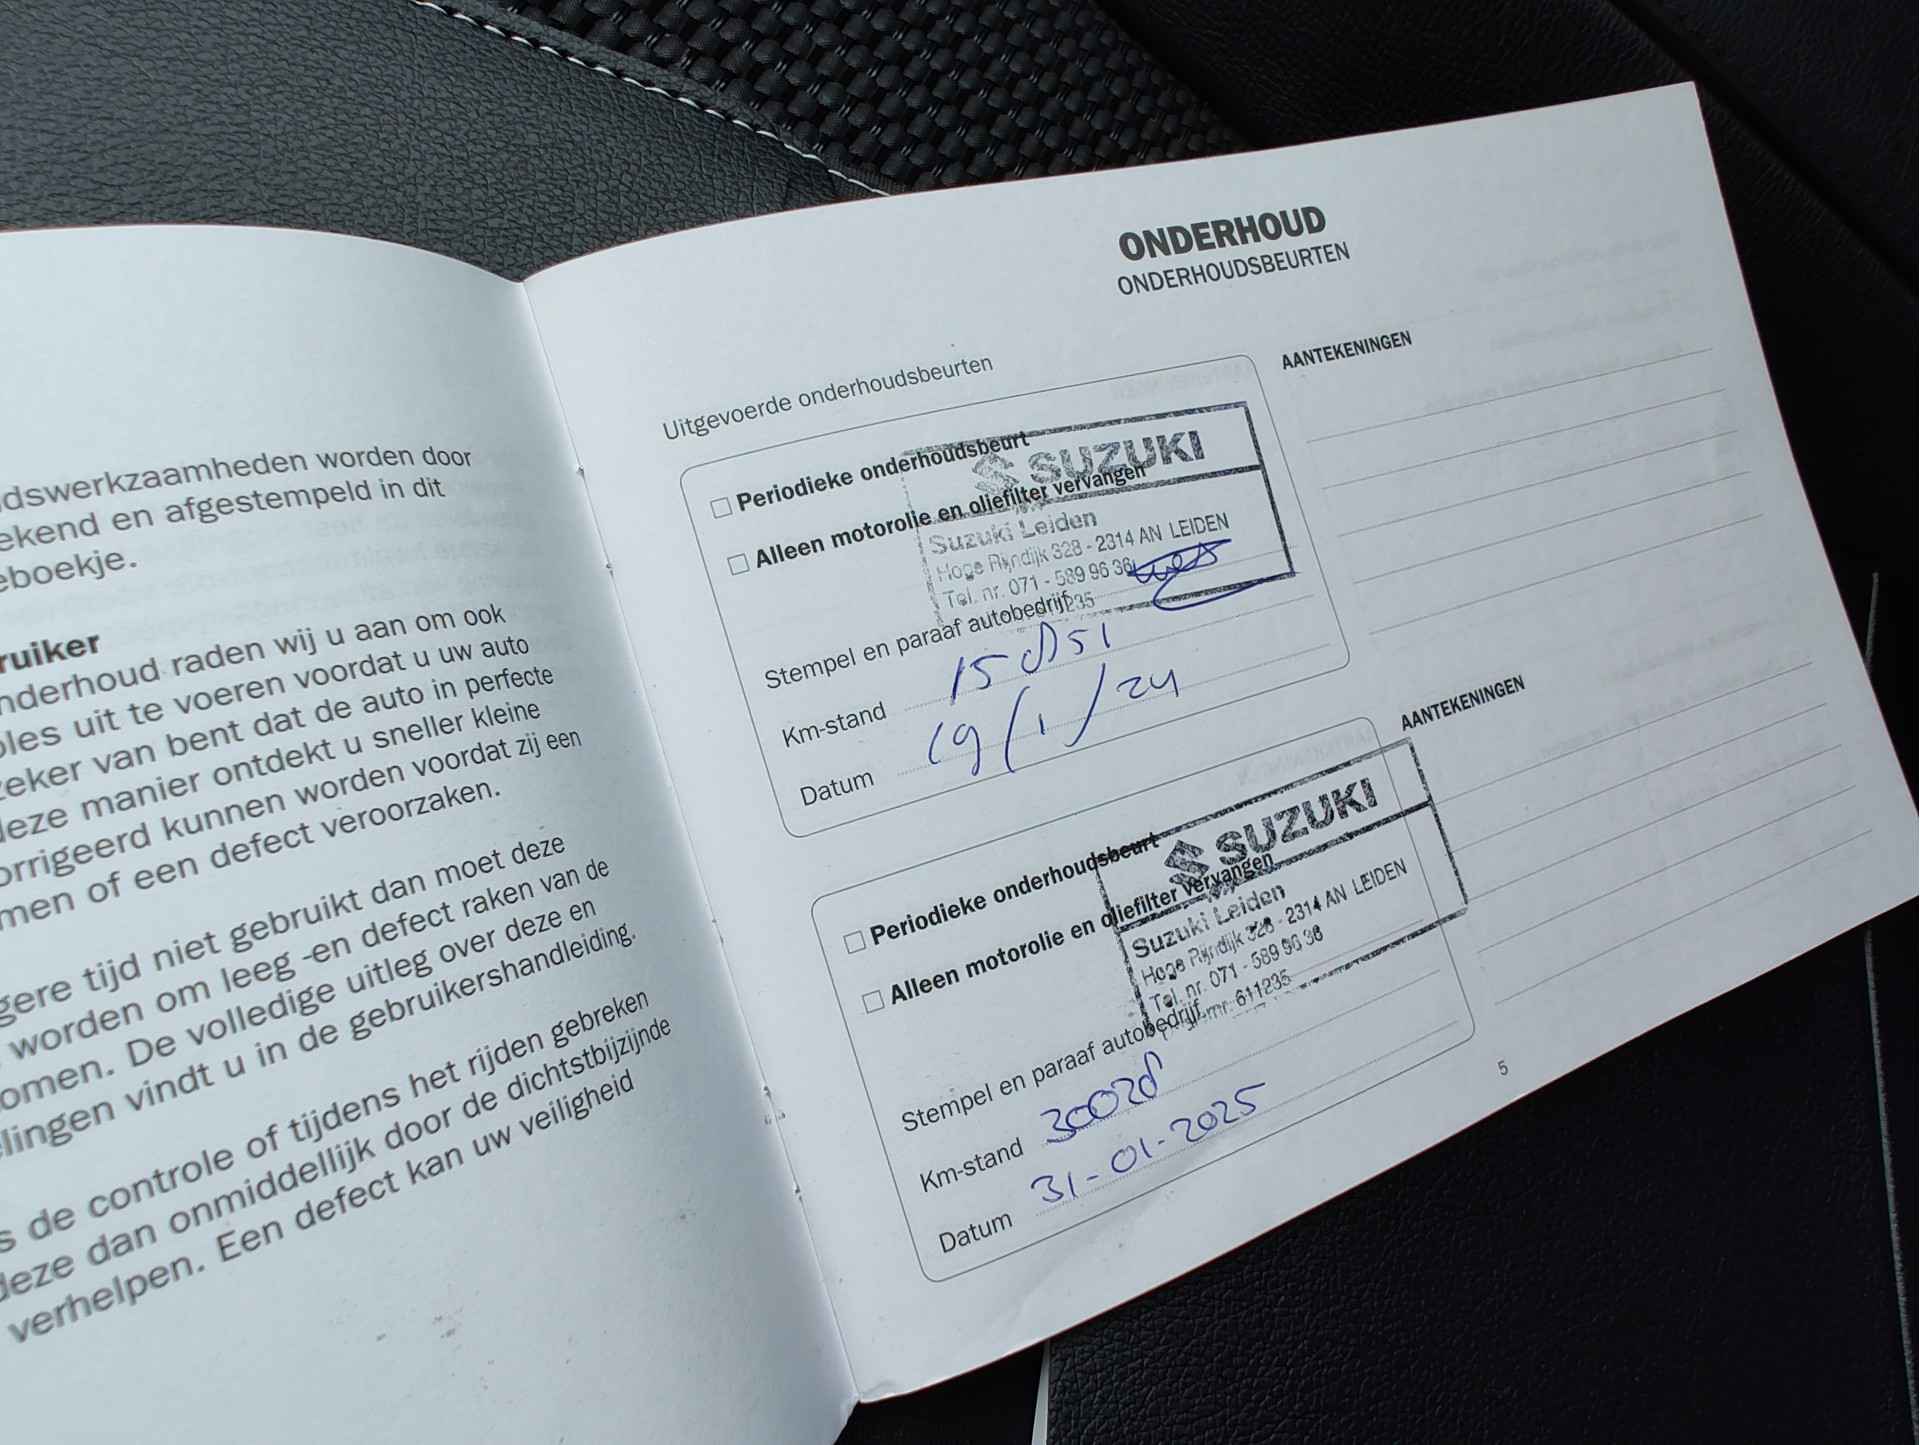 dswerkzaamheden worden door
ekend en afgestempeld in dit
eboekje.
ruiker
nderhoud raden wij u aan om ook
oles uit te voeren voordat u uw auto
zeker van bent dat de auto in perfecte
deze manier ontdekt u sneller kleine
orrigeerd kunnen worden voordat zij een
men of een defect veroorzaken.
gere tijd niet gebruikt dan moet deze
worden om leeg -en defect raken van de
omen. De volledige uitleg over deze en
elingen vindt u in de gebruikershandleiding.
s de controle of tijdens het rijden gebreken
deze dan onmiddellijk door de dichtstbijzijnde
verhelpen. Een defect kan uw veiligheid
ONDERHOUD
ONDERHOUDSBEURTEN
Uitgevoerde onderhoudsbeurten
AANTEKENINGEN
Periodieke onderhoudsbeurt
SUZUKI
Alleen motorolie en oliefilter vervangen
Suzuki Leiden
Hoge Rijndijk 328 - 2314 AN LEIDEN
Tel. nr. 071 - 589 96 36
Stempel en paraaf autobedrijf
Km-stand 15851
Datum 19/1/24
AANTEKENINGEN
Periodieke onderhoudsbeurt
SUZUKI
Alleen motorolie en oliefilter vervangen
Suzuki Leiden
Hoge Rijndijk 328 - 2314 AN LEIDEN
Tel. nr. 071 - 589 96 36
nr. 611235
Stempel en paraaf autobedrijf
Km-stand 30028
Datum 31-01-2025
5